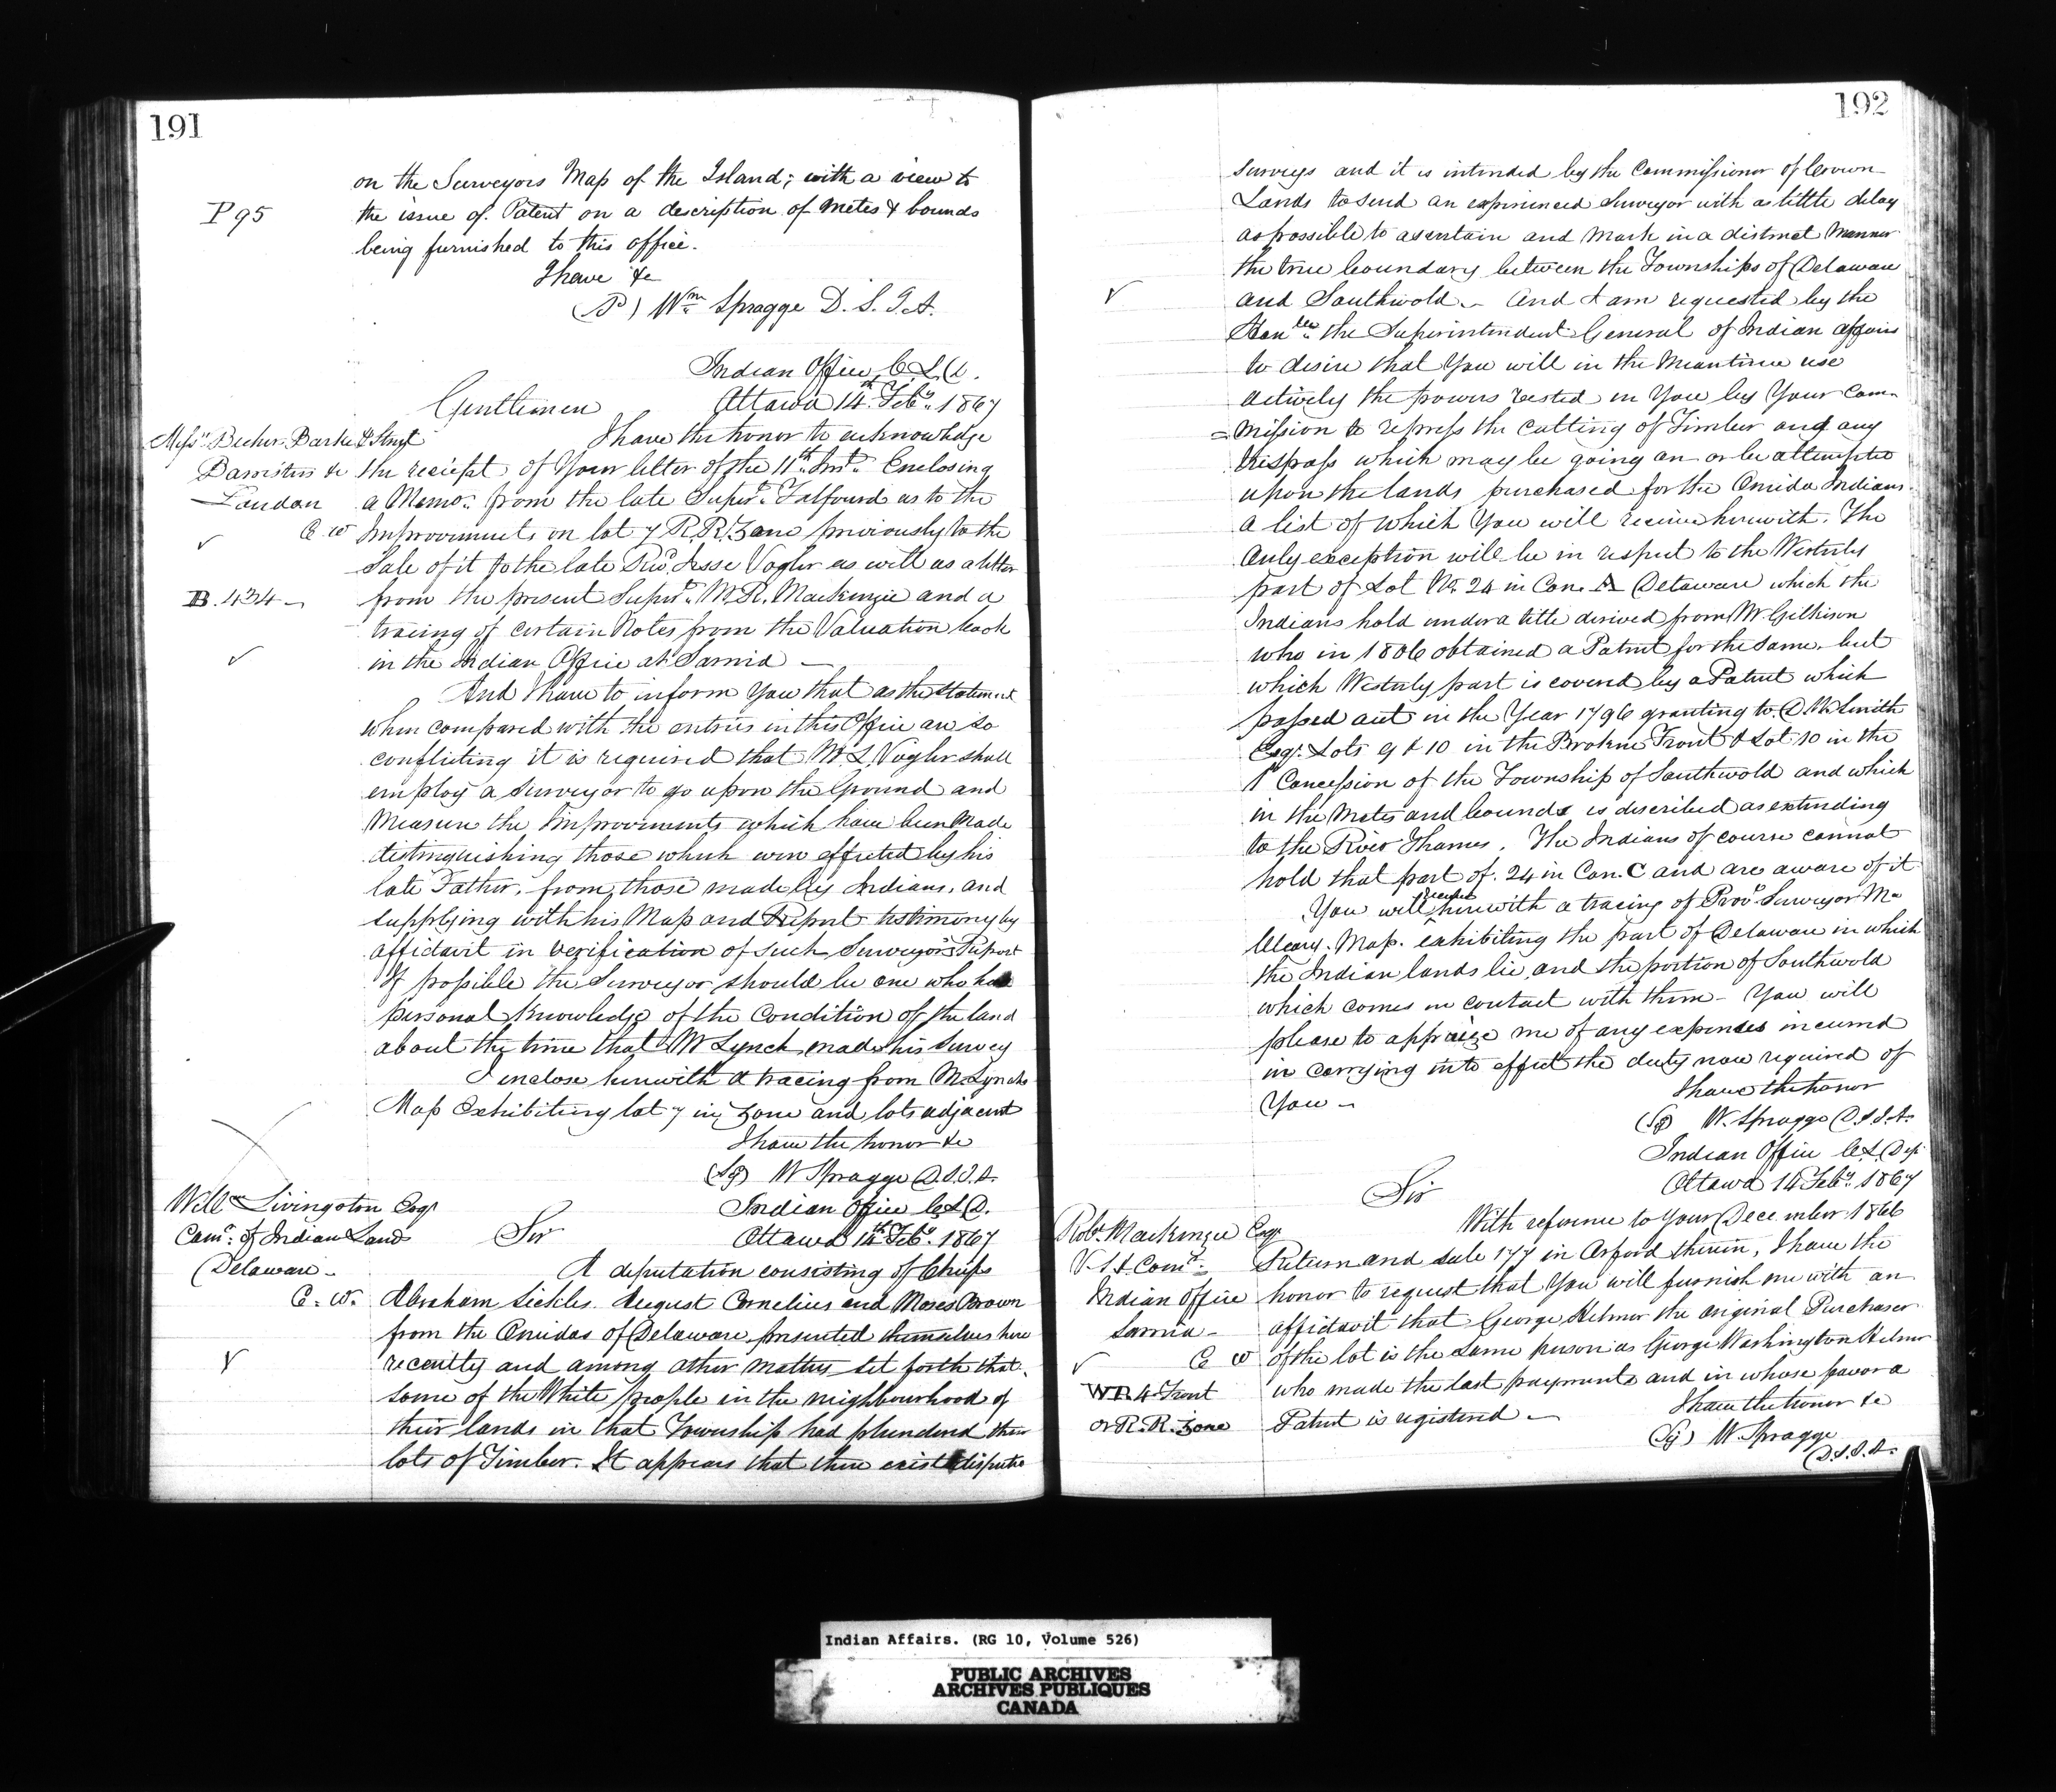 191
on the Surveyors Map of the Island; with a view to
P 95
the issue of Patent on a description of Metes & bounds
being furnished to this office.
I have &c
Wm Spragge D.S.I.A.
Indian Office C.L.D.
Gentlemen
Ottawa 14th Feby. 1867
Messrs Becher Barker & Street
I have the honor to acknowledge
Barristers &c
the reciept of Your letter of the 11th Inst. Enclosing
London
a Memo: from the late Supert. Talfourd as to the
C W
Improvements on lot 7 R.R. Zone previously to the
Sale of it to the late Revd. Jesse Vogler as well as a letter
B.434
from the present Supert. Mr R. Mackenzie and a
tracing of certain Notes from the Valuation book
in the Indian Office at Sarnia —
And I have to inform You that as the Statement
when compared with the entries in this Office are so
conflicting it is required that Mr. L. Vogler shall
employ a Surveyor to go upon the Ground and
Measure the Improvements which have been Made
distinguishing those which were effected by his
late Father, from those made by Indians, and
supplying with his Map and Report testimony by
affidavit in verification of such Surveyors Report
If possible the Surveyor should be one who has
personal Knowledge of the Condition of the land
about the time that Mr Lynch made his Survey
I enclose herewith a tracing from Mr. Lynchs
Map Exhibiting lot 7 in Zone and lots adjacent
I have the honor &c
(Sg) W Spragge D.S.I.A.
Willm Livingston Esqr
Indian Office C L D.
Comr. of Indian Land
Sir
Ottawa 14th Feby. 1867
Delaware
A deputation consisting of Chiefs
C. W.
Abraham Sickles August Cornelius and Moses Brown
from the Oneidas of Delaware presented themselves here
recently and among other matters set forth that
some of the White people in the neighbourhood of
their lands in that Township had plundered their
lots of Timber. It appears that there exist disputed
192
surveys and it is intended by the Commissioner of Crown
Lands to send an experienced Surveyor with as little delay
as possible to ascertain and Mark in a distinct Manner
the true boundary between the Townships of Delaware
and Southwold. And I am requested by the
Honble. the Superintendent General of Indian affairs
to desire that You will in the Meantime use
actively the powers vested in You by Your Com-
=mission to repress the cutting of Timber and any
trespass which may be going on or be attempted
upon the lands purchased for the Oneida Indians
a list of which You will receive herewith. The
Only exception will be in respect to the Westerly
part of Lot No. 24 in Con. A Delaware which the
Indians hold under a title derived from Mr Gilkison
who in 1806 obtained a Patent for the same, but
which Westerly part is covered by a Patent which
passed out in the Year 1796 granting to D. W. Smith
Esqr. Lots 9 & 10 in the Broken Front & Lot 10 in the
1 Concession of the Township of Southwold and which
in the Metes and bounds is discribed as extending
to the River Thames. The Indians of course cannot
hold that part of 24 in Con. C and are aware of it
receive
You will herewith a tracing of Provl Surveyor Mc
Cleary. Map. exhibiting the part of Delaware in which
the Indian lands lie, and the portion of Southwold
which comes in contact with them — You will
please to appraize me of any expenses incurred
in carrying into effect the duty now required of
You —
I have the honor
(Sg) W. Spragge D.S.I.A.
Indian Office C.L. Dep
Sir
Ottawa 14 Feby. 1867
Robt. Mackenzie Esqr
With reference to Your December 1866
V. S. & Comr.
Return and sale 177 in Orford therein, I have the
Indian Office
honor to request that You will furnish me with an
Sarnia —
affidavit that George Helmer the original Purchaser
C W
of the lot is the same person as George Washington Helmer
W P. 4 Front
who made the last payments and in whose favor a
or R. R. Zone
Patent is registered —
I have the honor &c
(Sg) W. Spragge
D.S.I.A.
Indian Affairs. (RG 10, Volume 526)
PUBLIC ARCHIVES
ARCHIVES PUBLIQUES
CANADA